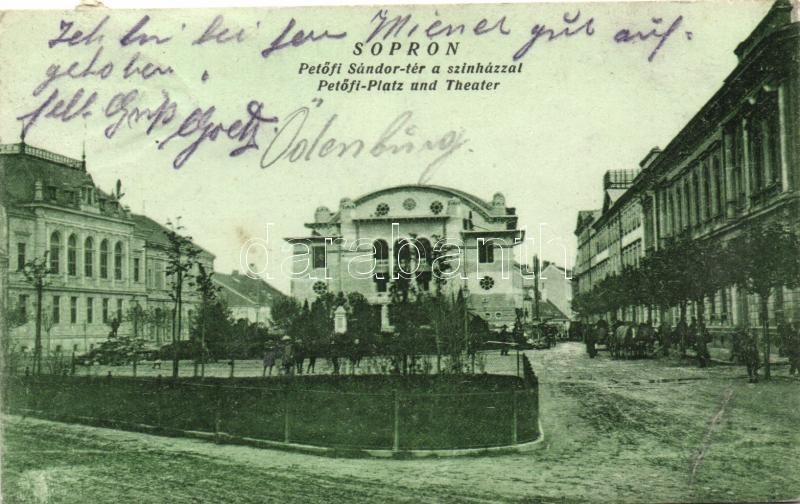 Ich bin bei fern Wienel gut auf-
gehoben.
fell. Gruß Goetz
Ödenburg.
SOPRON
Petőfi Sándor-tér a szinházzal
Petőfi-Platz und Theater
darabanth.com